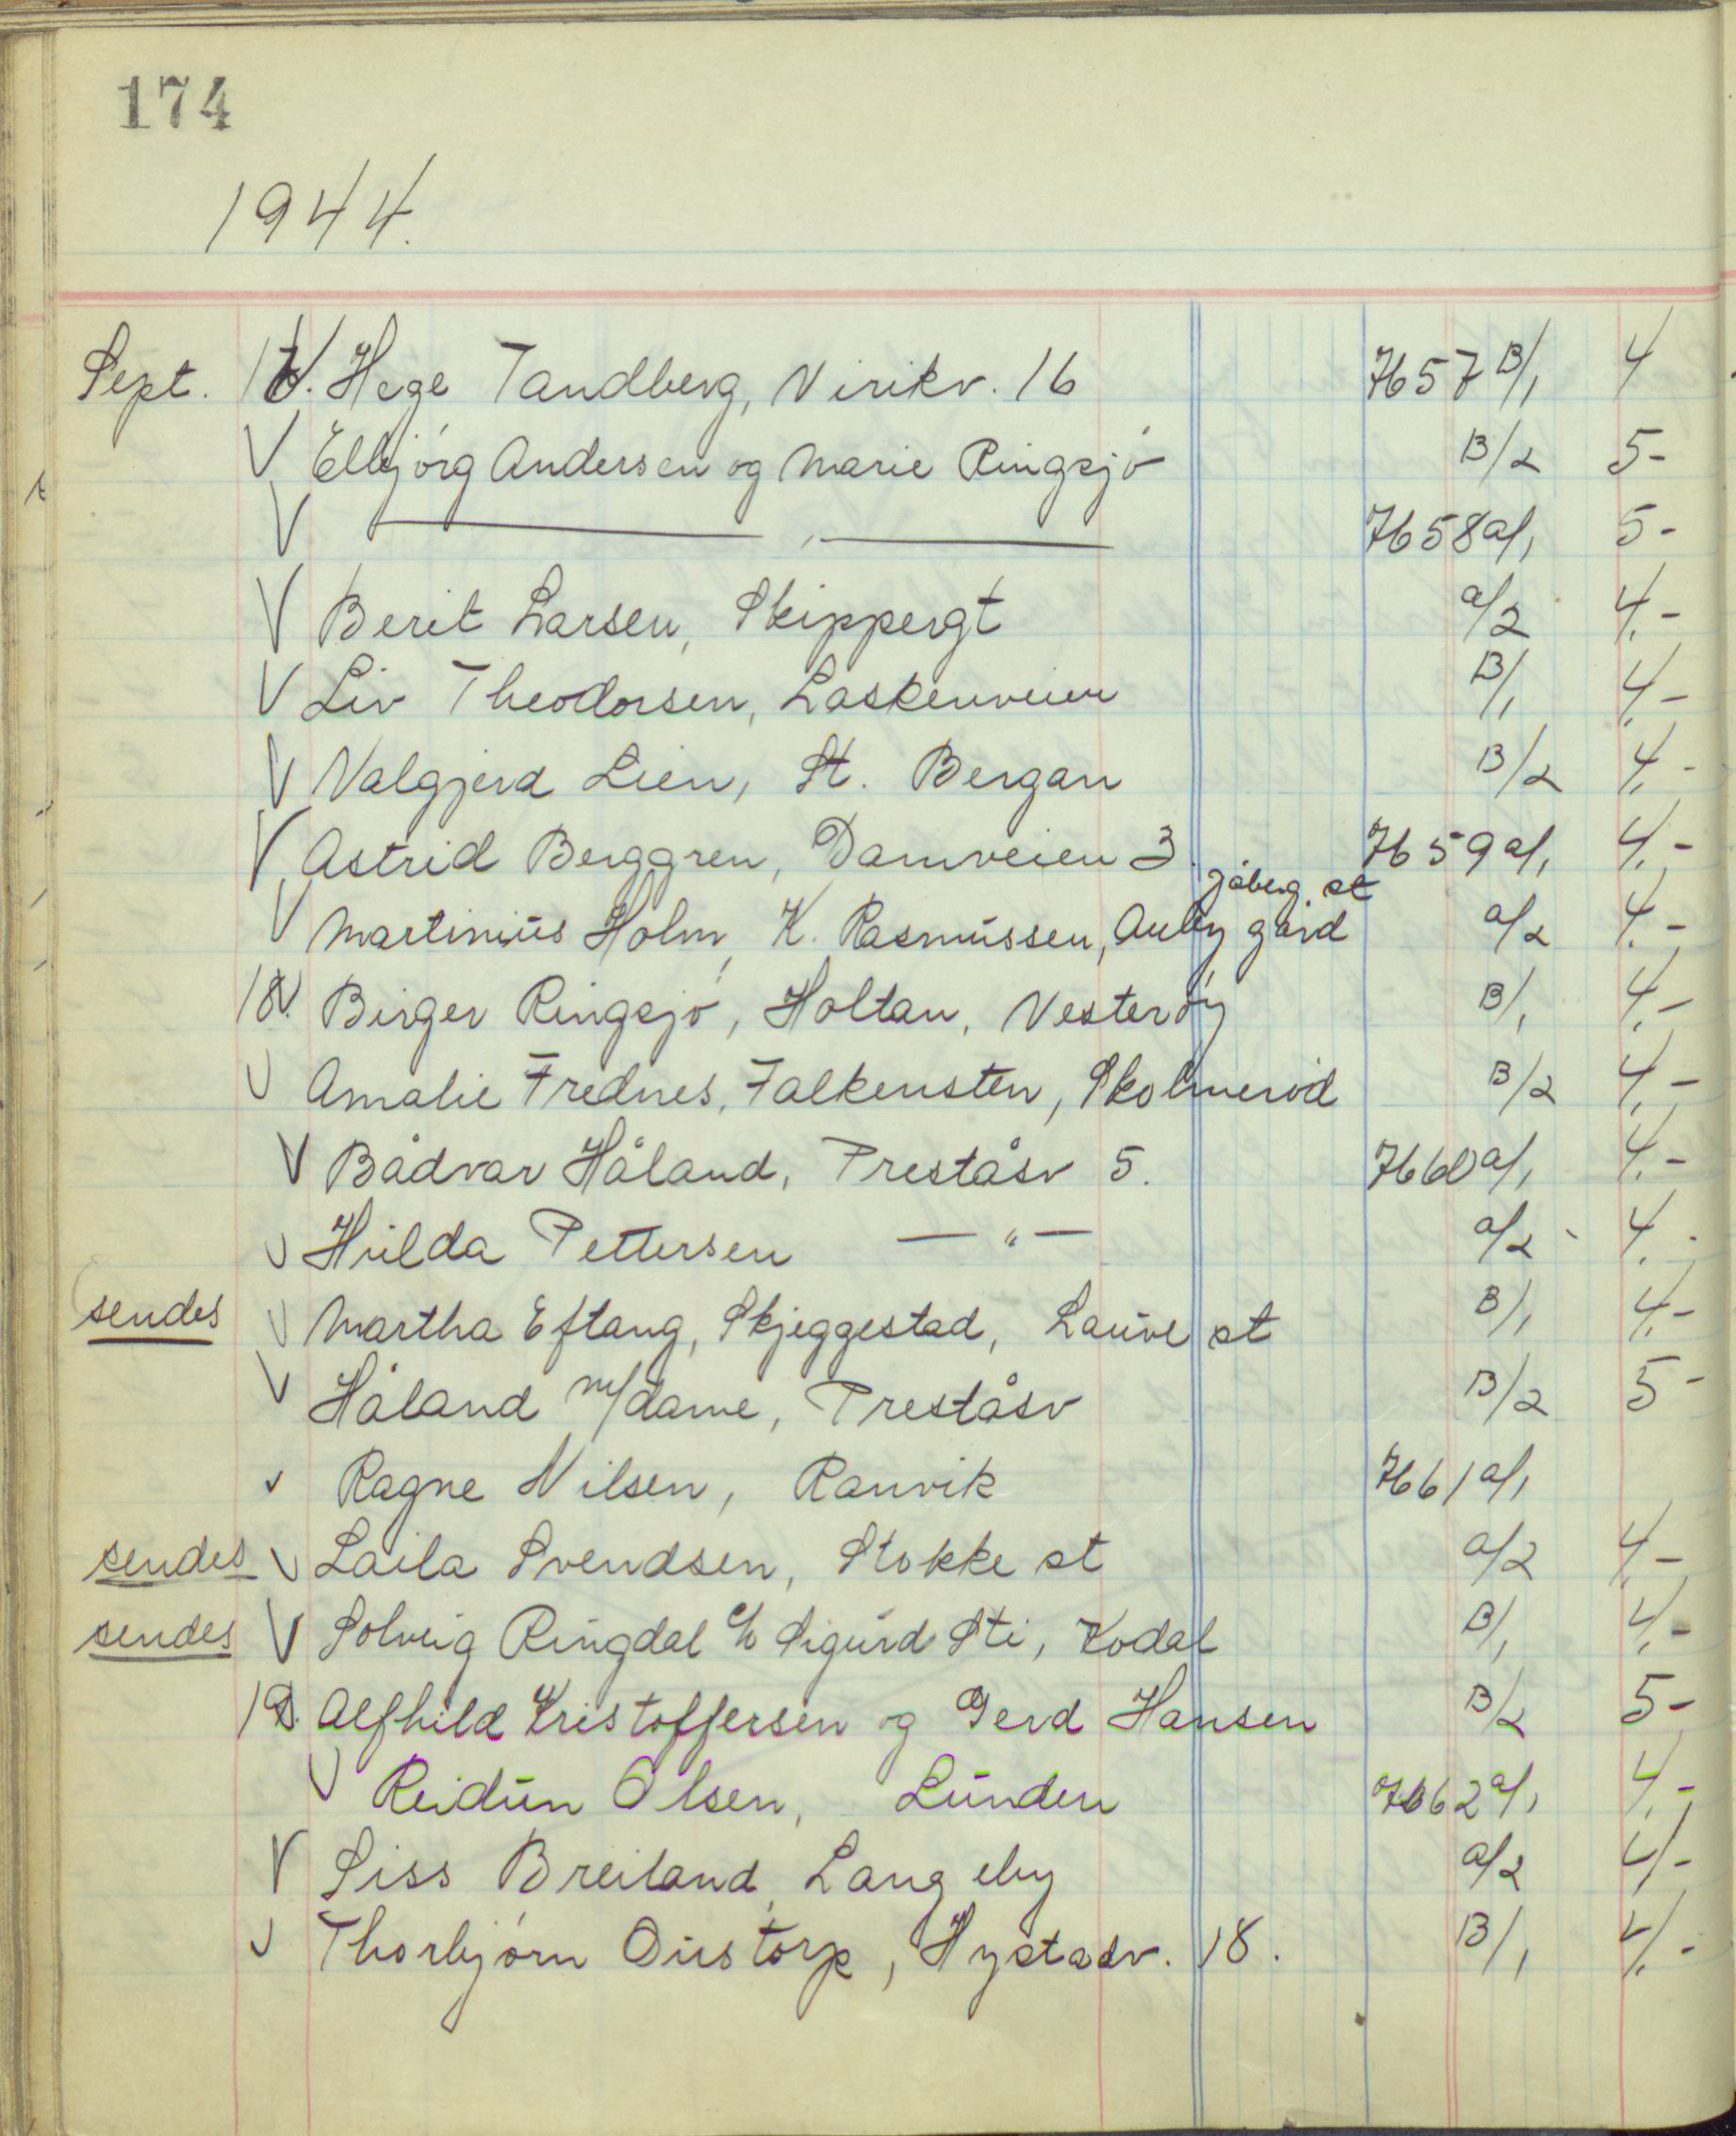 174
1944.
Sept. 16. V Hege Tandberg, Virikv. 16 7657 B/1 4
V Ellbjörg Andersen og Marie Ringsjö B/2 5-
V — " — 7658 a/1 5-
V Berit Larsen, Skippergt a/2 4.-
V Liv Theodorsen, Laskenveien B/1 4.-
V Valgjerd Lien, St. Bergan B/2 4.-
V Astrid Berggren, Damveien 3. 7659 a/1 4.-
Jåberg st
V Martinius Holm, K. Rasmussen, Auby gård a/2 4.-
18. V Birger Ringsjö, Holtan, Vesterøy B/1 4.-
V Amalie Frednes, Falkensten, Skolmerød B/2 4.-
V Bådvar Håland, Preståsv 5. 7660 a/1 4.-
V Hulda Pettersen — " — a/2 4.-
sendes V Martha Eftang, Skjeggestad, Lauve st B/1 4.-
V Håland m/dame, Preståsv B/2 5-
V Ragne Nilsen, Ranvik 7661 a/1
sendes V Laila Svendsen, Stokke st a/2 4.-
sendes V Solveig Ringdal c/o Sigurd Sti, Kodal B/1 4.-
19. Alfhild Kristoffersen og Gerd Hansen B/2 5-
V Reidun Olsen, Lunden 7662 a/1 4.-
V Siss Breiland, Langeby a/2 4.-
V Thorbjörn Oustorp, Hystadv. 18. B/1 4.-